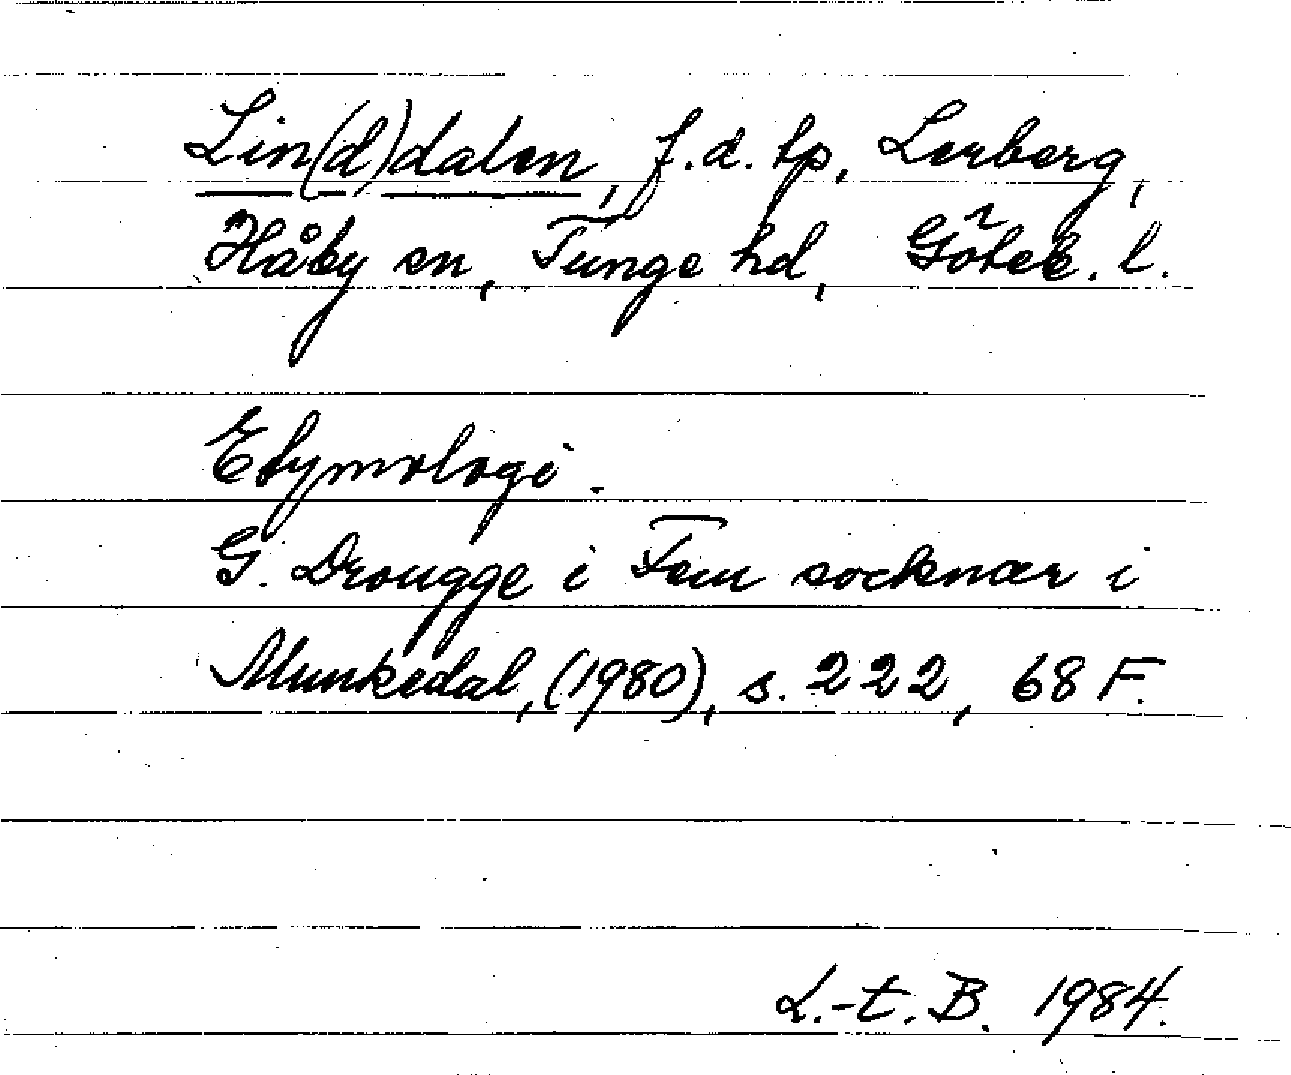 Lin(d)dalen, f.d. tp, Lerberg,
Håby sn, Tunge hd, Göteb. l.
Etymologi.
G. Drougge i Fem socknar i
Munkedal, (1980), s. 222, 68 F.
L.-t. B. 1984.